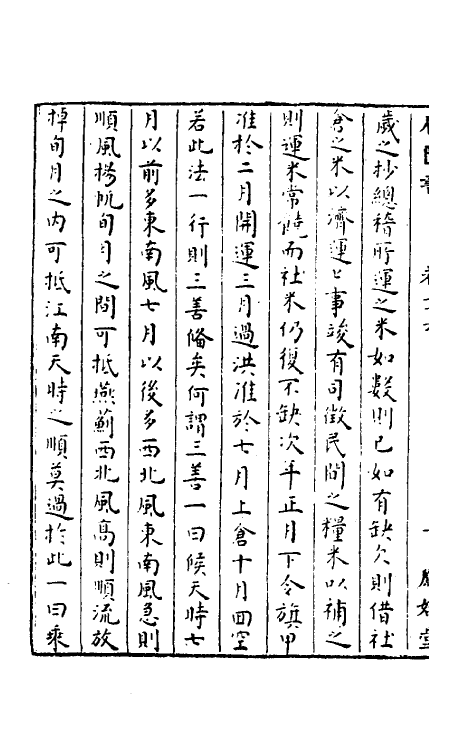 歲之抄總稽所運之米如數則已如有缺欠則借社
倉之米以濟運運事竣有司徵民間之糧米以補之
則運米常饒而社米仍復不缺次年正月下令旗甲
准於二月開運三月過洪准於七月上倉十月回空
若此法一行則三善備矣何謂三善一曰候天時七
月以前多東南風七月以後多西北風東南風急則
順風揚帆旬月之間可抵燕薊西北風高則順流放
棹旬月之內可抵江南天時之順莫過於此一曰乘